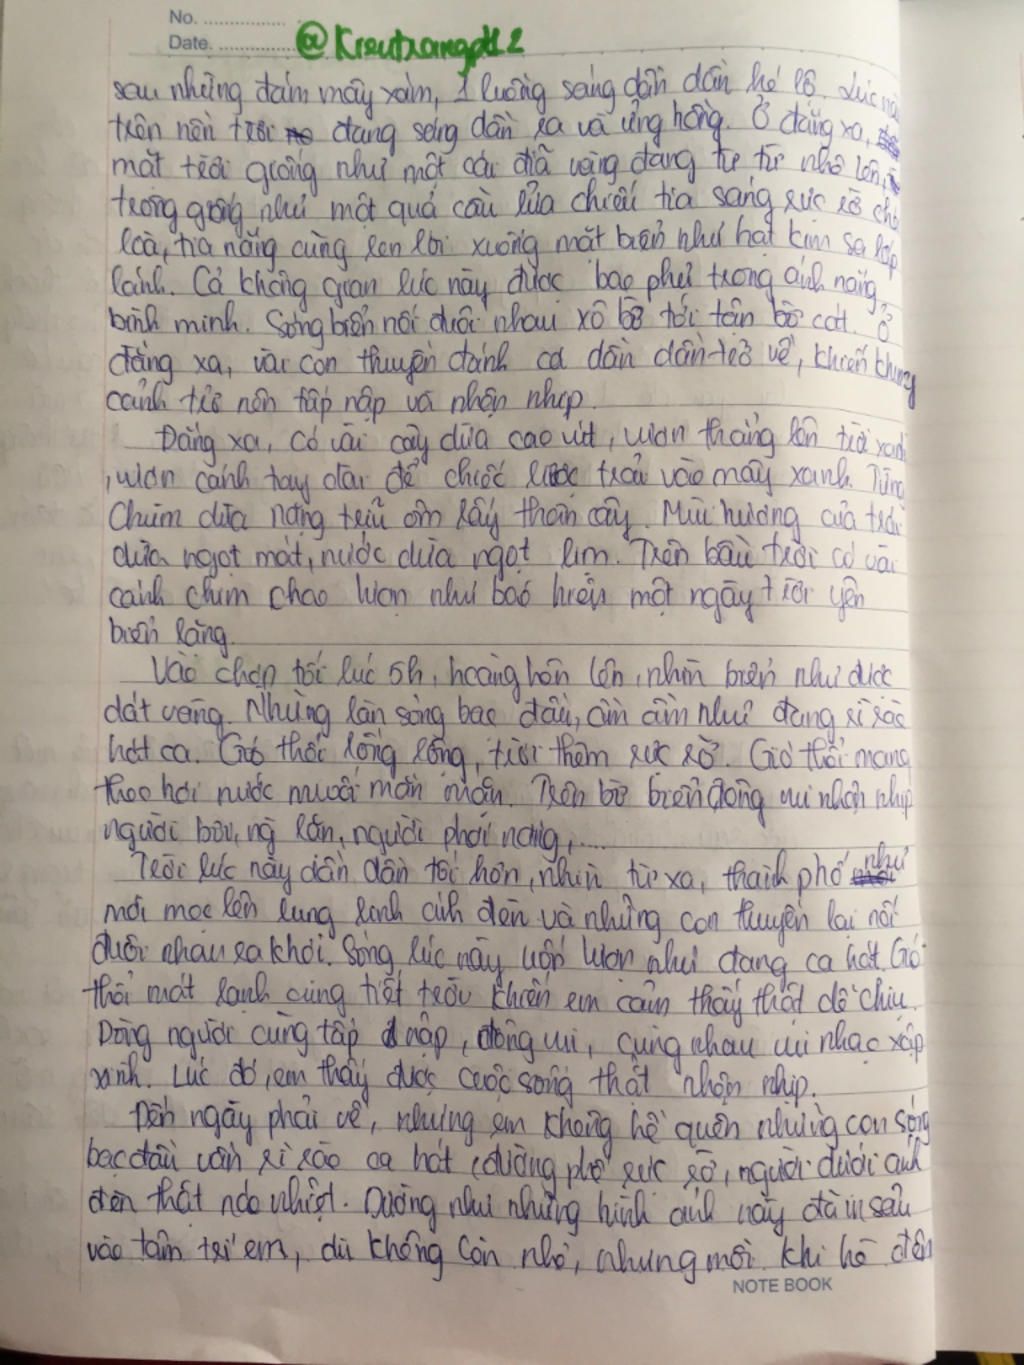 No. ...............
Date. ...............
@Kieutrangpth2
sau những đám mây xám, 1 luồng sáng dần dần hé lộ. Lúc này
trên nền trời đang sáng dần ra và ửng hồng. Ở đằng xa,
mặt trời giống như một cái đĩa vàng đang từ từ nhô lên,
trông giống như một quả cầu lửa chiếu tia sáng rực rỡ chói
loà, tia nắng cũng len lỏi xuống mặt biển như hạt kim sa lấp
lánh. Cả không gian lúc này được bao phủ trong ánh nắng
bình minh. Sóng biển nối đuôi nhau xô bờ tới tận bờ cát. Ở
đằng xa, vài con thuyền đánh cá dần dần trở về, khiến khung
cảnh trở nên tấp nập và nhộn nhịp.
Đằng xa, có vài cây dừa cao vút, vươn thẳng lên trời xanh
, vươn cánh tay dài để chiếc lược trải vào mây xanh. Từng
chùm dừa nặng trĩu ôm lấy thân cây. Mùi hương của trái
dừa ngọt mát, nước dừa ngọt lịm. Trên bầu trời có vài
cánh chim chao lượn như báo hiệu một ngày trời yên
biển lặng.
Vào chập tối lúc 5h, hoàng hôn lên, nhìn biển như được
dát vàng. Những làn sóng bạc đầu, ầm ầm như đang rì rào
hát ca. Gió thổi lồng lộng, trời thêm rực rỡ. Gió thổi mang
theo hơi nước muối mằn mặn. Trên bờ biển đông vui nhộn nhịp
người bơi, người phơi nắng,....
Trời lúc này dần dần tối hơn, nhìn từ xa, thành phố như
mới mọc lên lung lanh ánh đèn và những con thuyền lại nối
đuôi nhau ra khơi. Sóng lúc này uốn lượn như đang ca hát. Gió
thổi mát lạnh cùng tiết trời khiến em cảm thấy thật dễ chịu.
Dòng người cũng tấp nập, đông vui, cùng nhau vui nhạc xập
xình. Lúc đó, em thấy được cuộc sống thật nhộn nhịp.
Đến ngày phải về, nhưng em không hề quên những con sóng
bạc đầu vẫn rì rào ca hát, đường phố rực rỡ, người dưới ánh
đèn thật náo nhiệt. Dường như những hình ảnh này đã in sâu
vào tâm trí em, dù không còn nhỏ, nhưng mỗi khi hè đến
NOTE BOOK